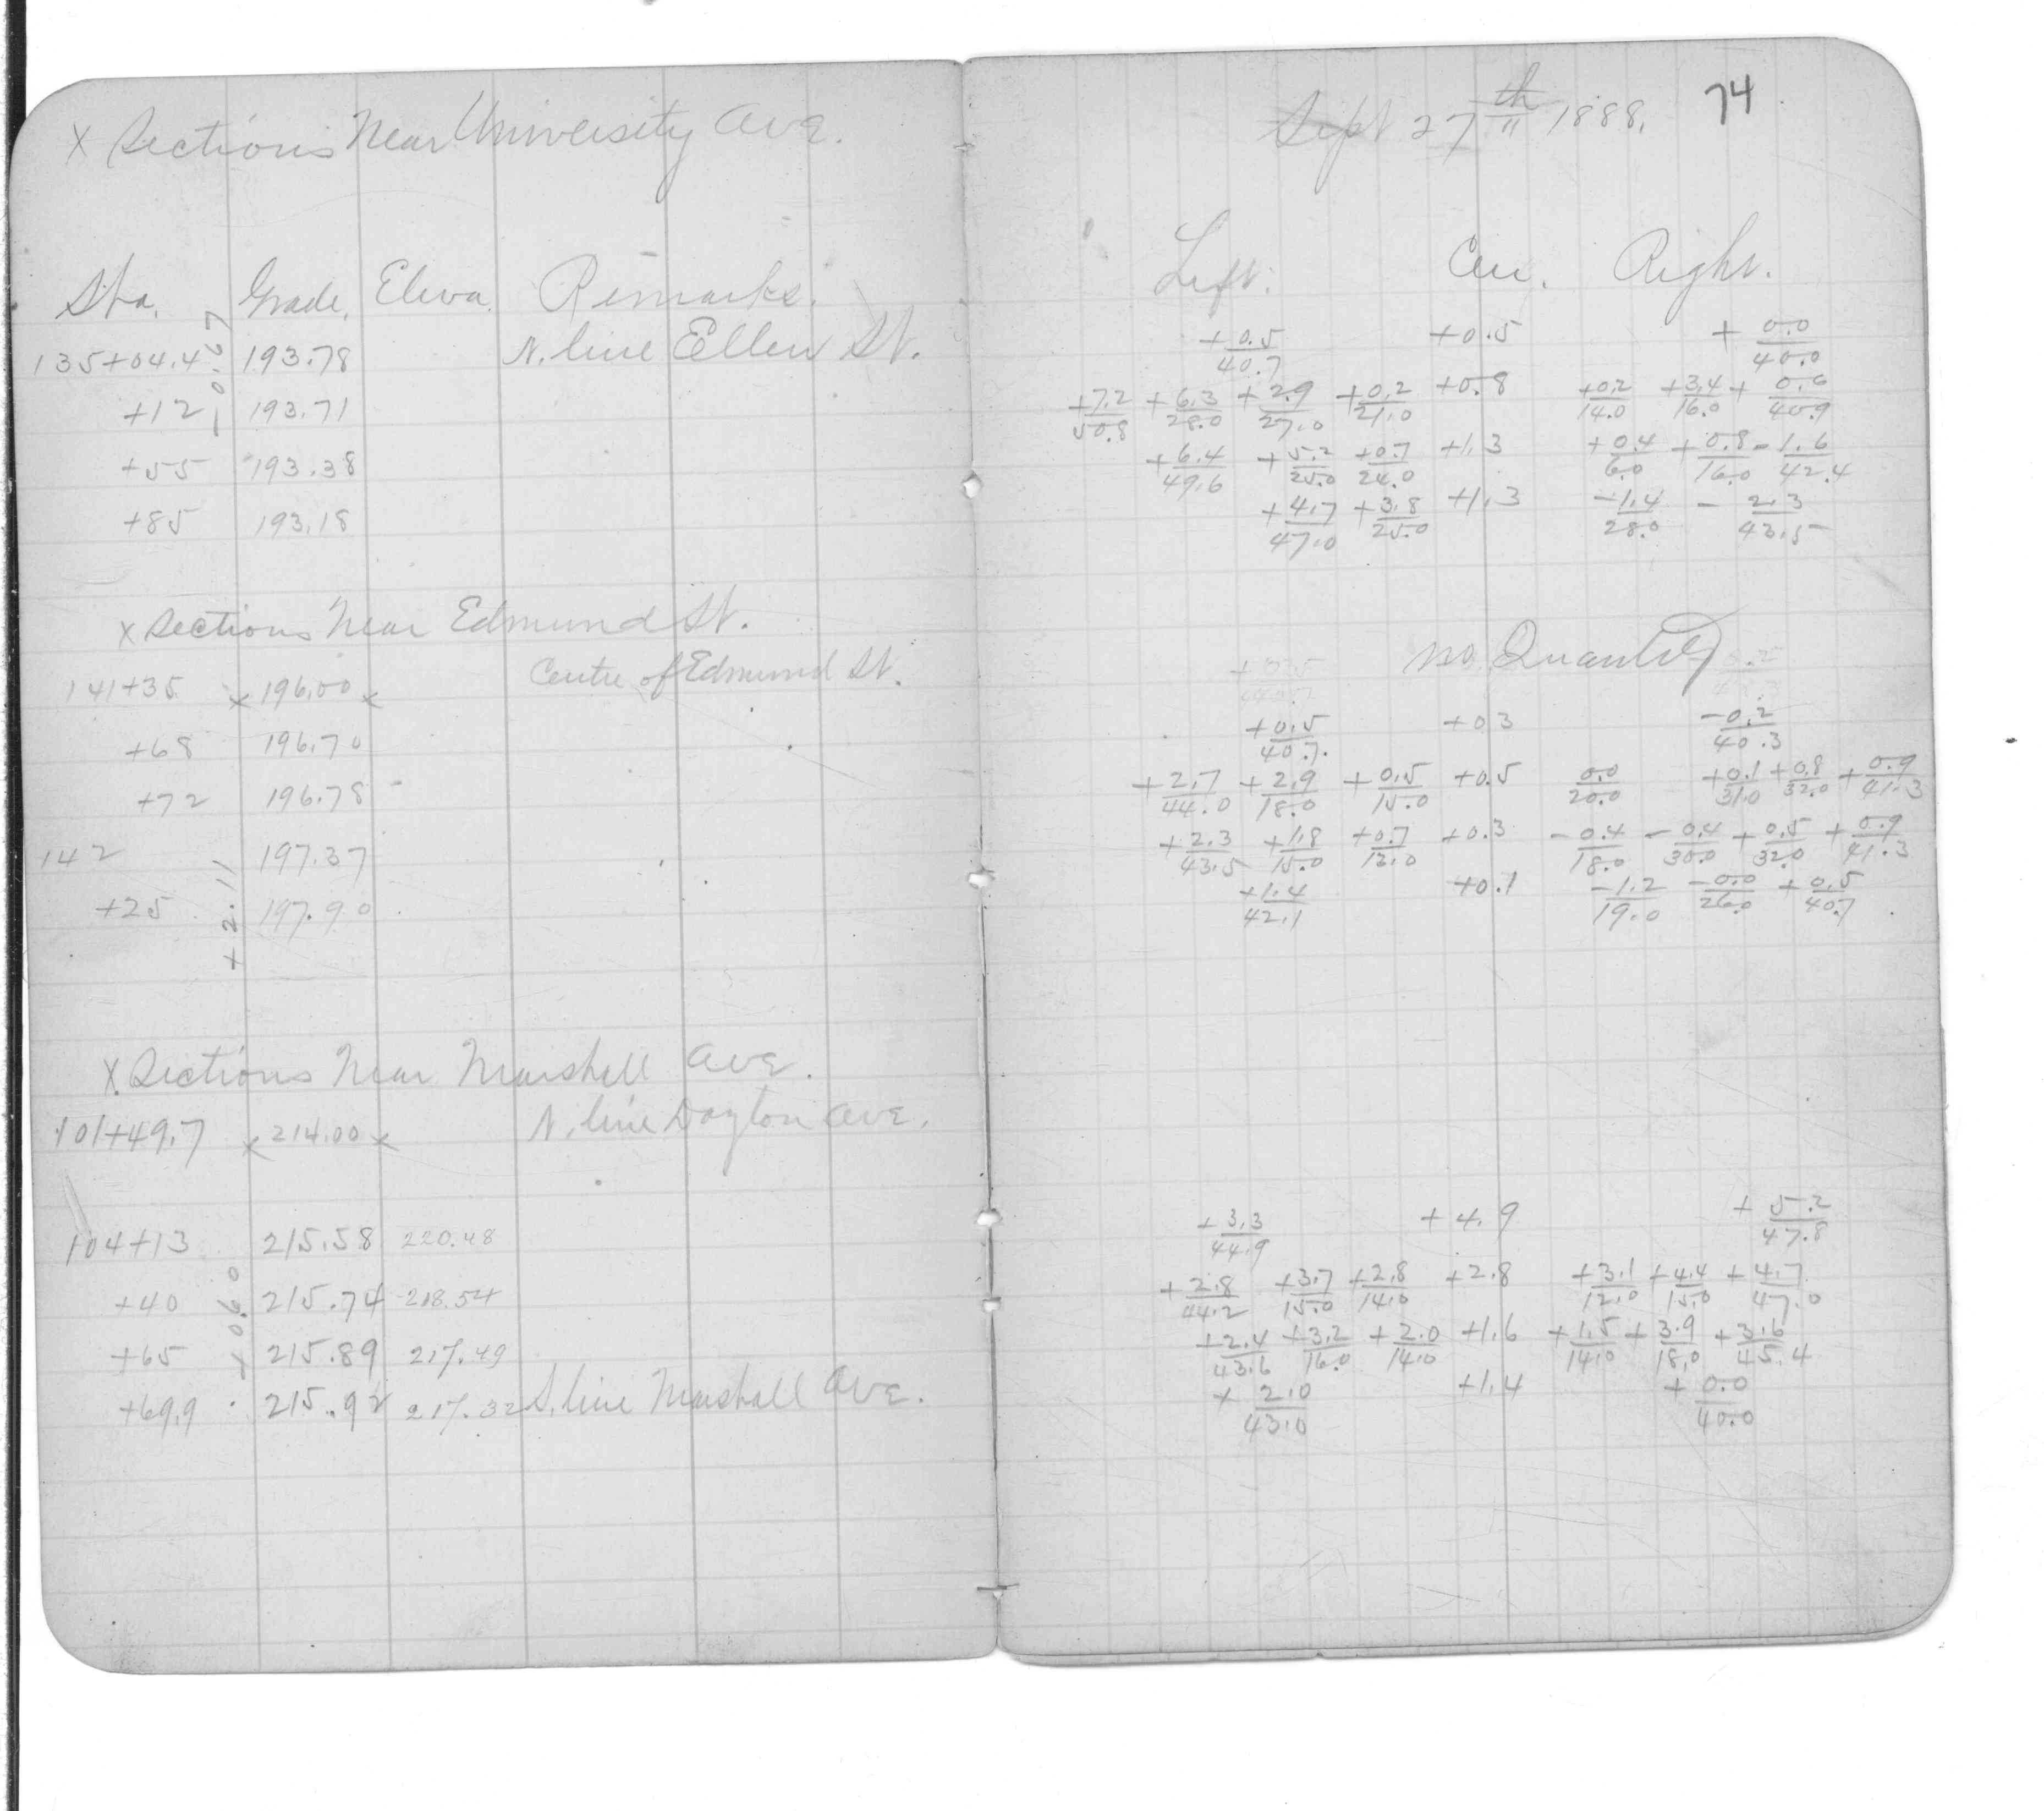 X Sections Near University Ave.
Sta. Grade. Eleva. Remarks.
135+04.4 193.78 N. line Ellen St.
+12 193.71
+55 193.38
+85 193.18
-0.67
X Sections Near Edmund St.
141+35 x 196.00 x Centre of Edmund St.
+68 196.70
+72 196.78
142 197.37
+25 197.90
+2.11
X Sections Near Marshall Ave.
101+49.7 x 214.00 x N. line Dayton Ave.
104+13 215.58 220.48
+40 215.74 218.54
+65 215.89 217.49
+69.9 215.92 217.32 S. line Marshall Ave.
+0.60
Sept 27th 1888. 74
Left. Cen. Right.
+0.5/40.7 +0.5 +0.0/40.0
+7.2/50.8 +6.3/28.0 +2.9/27.0 +0.2/21.0 +0.8 +0.2/14.0 +3.4/16.0 +0.6/40.9
+6.4/49.6 +5.2/25.0 +0.7/24.0 +1.3 +0.4/6.0 +0.8/16.0 -1.6/42.4
+4.7/47.0 +3.8/25.0 +1.3 -1.4/28.0 -2.3/43.5
no Quantity
+0.5/40.7. +0.3 -0.2/40.3
+2.7/44.0 +2.9/18.0 +0.5/15.0 +0.5 0.0/20.0 +0.1/31.0 +0.8/32.0 +0.9/41.3
+2.3/43.5 +1.8/15.0 +0.7/13.0 +0.3 -0.4/18.0 -0.4/30.0 +0.5/32.0 +0.9/41.3
+1.4/42.1 +0.1 -1.2/19.0 -0.0/26.0 +0.5/40.7
+3.3/44.9 +4.9 +5.2/47.8
+2.8/44.2 +3.7/15.0 +2.8/14.0 +2.8 +3.1/12.0 +4.4/15.0 +4.7/47.0
+2.4/43.6 +3.2/16.0 +2.0/14.0 +1.6 +1.5/14.0 +3.9/18.0 +3.6/45.4
+2.0/43.0 +1.4 +0.0/40.0